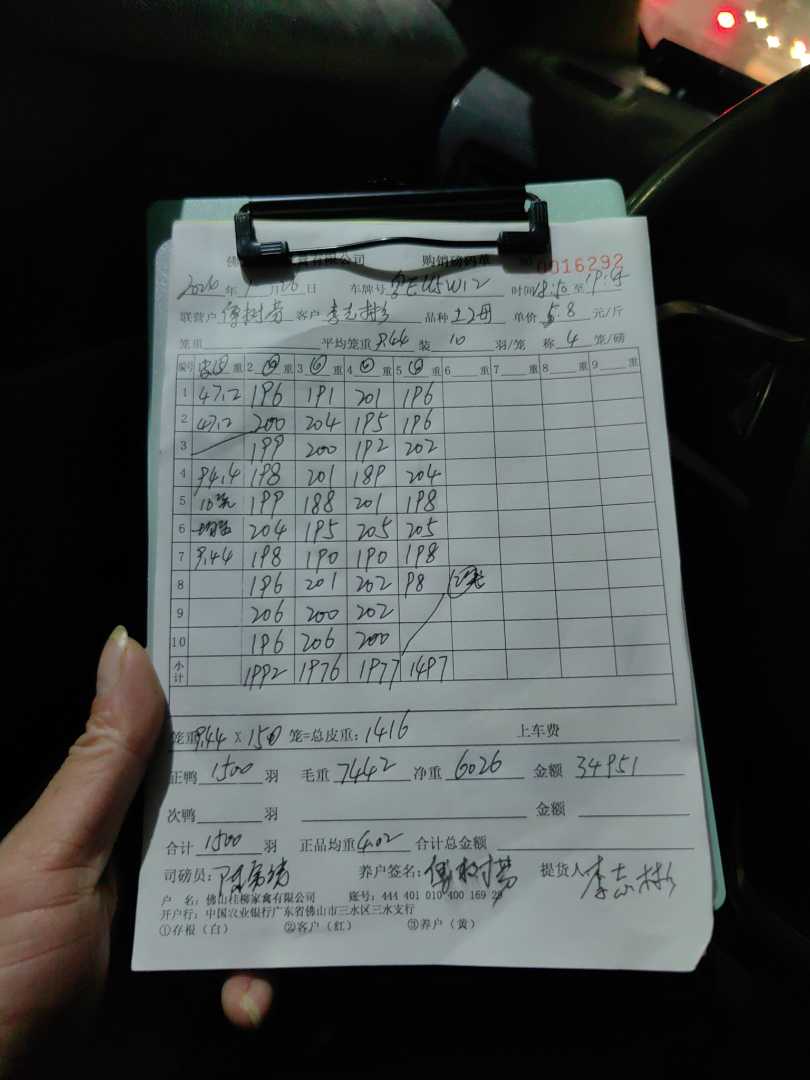 佛 禽有限公司 购销磅码单 0016292
2026 年 1 月 26 日 车牌号 时间 至
联营户 傅树芳 客户 李志彬 品种 土2毋 单价 5.8 元/斤
笼重 平均笼重 9.44 装 10 羽/笼 称 4 笼/磅
编号 重 2 重 3 重 4 重 5 重 6 重 7 重 8 重 9 重
1 47.2 196 191 201 196
2 47.2 200 204 195 196
3 199 200 192 202
4 94.4 198 201 189 204
5 10 199 188 201 198
6 204 195 205 205
7 9.44 198 190 190 198
8 196 201 202 98
9 206 200 202
10 196 206 200
小计 1992 1976 1977 1497
笼重 9.44 X 150 笼=总皮重: 1416 上车费
正鸭 1500 羽 毛重 7442 净重 6026 金额 34951
次鸭 羽 金额
合计 1500 羽 正品均重 4.02 合计总金额
司磅员: 养户签名: 傅树芳 提货人 李志彬
户 名: 佛山桂柳家禽有限公司 账号: 444 401 010 400 169 29
开户行: 中国农业银行广东省佛山市三水区三水支行
①存根（白） ②客户（红） ③养户（黄）